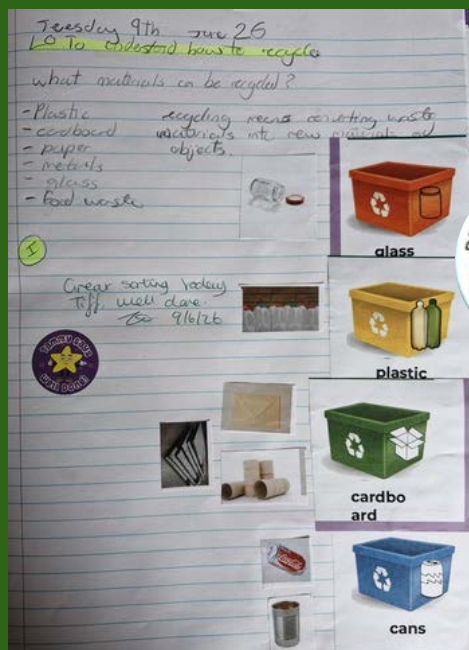 Tuesday 9th June 26
LO To understand how to recycle
what materials can be recycled?
- Plastic
- cardboard
- paper
- metals
- glass
- food waste
recycling means converting waste
materials into new materials and
objects.
I
Great sorting today
Tiff, well done.
9/6/26
TOMMY SAYS
WELL DONE!
glass
plastic
cardbo
ard
cans